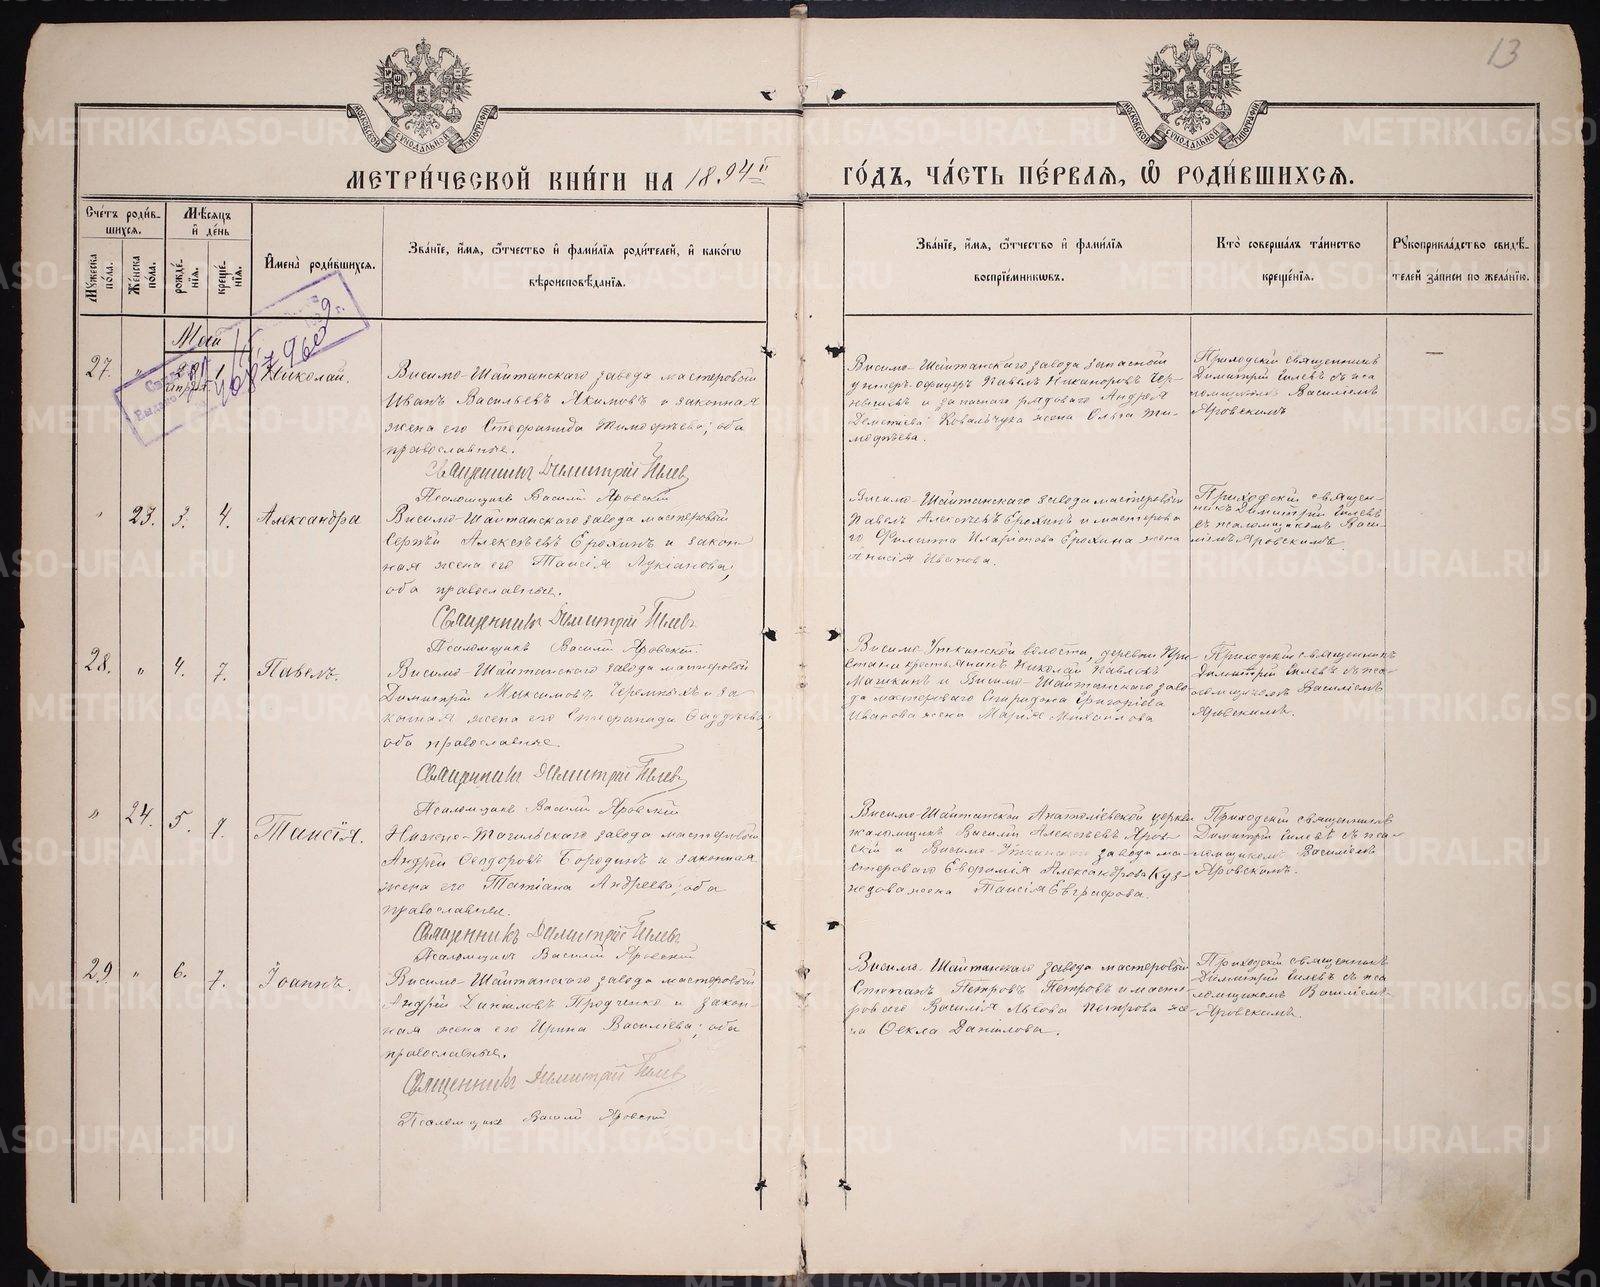 13
МОСКОВСКОЙ СѴНОДАЛЬНОЙ ТИПОГРАФІИ
МОСКОВСКОЙ СѴНОДАЛЬНОЙ ТИПОГРАФІИ
МЕТРИ́ЧЕСКОЙ КНИ́ГИ НА 1894й ГО́ДЪ, ЧА́СТЬ ПЕ́РВАЯ, Ѡ РОДИ́ВШИХСЯ.
Сче́тъ роди́в-
шихся.
Мѣ́сяцъ
и҆ де́нь
Мꙋ́жеска
по́ла.
Же́нска
по́ла.
рожде́-
нїѧ.
креще́-
нїѧ.
И҆мена̀ роди́вшихся.
Зва́нїе, и҆́мѧ, ѻ҆́тчество и҆ фами́лїѧ роди́телей, и҆ како́гѡ
вѣроисповѣ́данїѧ.
Зва́нїе, и҆́мѧ, ѻ҆́тчество и҆ фами́лїѧ
воспрїе́мникѡвъ.
Кто̀ соверша́лъ та́инство
креще́нїѧ.
Рꙋкоприкла́дство свидѣ́-
телей за́писи по жела́нїю.
Май
27. " 1 Николай.
Висимо-Шайтанскаго завода мастеровой
Иванъ Васильевъ Якимовъ и законная
жена его Стефанида Тимофѣева; оба
православные.
Священникъ Димитрій Гилев
Псаломщикъ Василій Яровскій
Висимо-Шайтанскаго завода запасной
унтеръ-офицеръ Павелъ Никаноровъ Чер-
нышевъ и запаснаго рядоваго Андрея
Дементьева Ковальчука жена Ольга Ти-
мофѣева.
Приходскій священникъ
Димитрій Гилевъ съ пса-
ломщикомъ Василіемъ
Яровскимъ
" 23. 3. 4. Александра
Висимо-Шайтанскаго завода мастеровой
Сергѣй Алексѣевъ Ерохинъ и закон-
ная жена его Таисія Лукіанова;
оба православные.
Священникъ Димитрій Гилевъ
Псаломщикъ Василій Яровскій.
Висимо-Шайтанскаго завода мастеровой
Павелъ Алексѣевъ Ерохинъ и мастерова
го Филиппа Иларіонова Ерохина жена
Анисія Иванова.
Приходскій священ-
никъ Димитрій Гилевъ
съ псаломщикомъ Васи-
ліемъ Яровскимъ.
28. " 4. 7. Павелъ.
Висимо-Шайтанскаго завода мастеровой
Димитрій Максимовъ Черемныхъ и за
конная жена его Стефанида Фаддѣева;
оба православные.
Священникъ Димитрій Гилевъ
Псаломщикъ Василій Яровскій
Висимо-Уткинской волости, деревни При
стани крестьянинъ Николай Павловъ
Машкинъ и Висимо-Шайтанскаго заво
да мастероваго Спиридона Григоріева
Иванова жена Марія Михаилова
Приходскій священникъ
Димитрій Гилевъ съ пса-
ломщикомъ Василіемъ
Яровскимъ.
" 24. 5. 7. Таисія.
Нижне-Тагильскаго завода мастеровой
Андрей Феодоровъ Бородинъ и законная
жена его Татіана Андреева; оба
православные.
Священникъ Димитрій Гилевъ
Псаломщикъ Василій Яровскій
Висимо-Шайтанской Анатоліевской церкви
псаломщикъ Василій Алексѣевъ Яров-
скій и Висимо-Уткинскаго завода ма-
стероваго Евфимія Александрова Куз-
нецова жена Таисія Евграфова.
Приходскій священникъ
Димитрій Гилевъ съ пса-
ломщикомъ Василіемъ
Яровскимъ.
29. " 6. 7. Іоаннъ.
Висимо-Шайтанскаго завода мастеровой
Андрей Даниловъ Продченко и закон-
ная жена его Ирина Василіева; оба
православные.
Священникъ Димитрій Гилев
Псаломщикъ Василій Яровскій
Висимо-Шайтанскаго завода мастеровой
Степанъ Петровъ Петровъ и масте-
роваго Василія Львова Петрова же-
на Фекла Данилова.
Приходскій священникъ
Димитрій Гилевъ съ пса
ломщикомъ Василіемъ
Яровскимъ.
METRIKI.GASO-URAL.RU